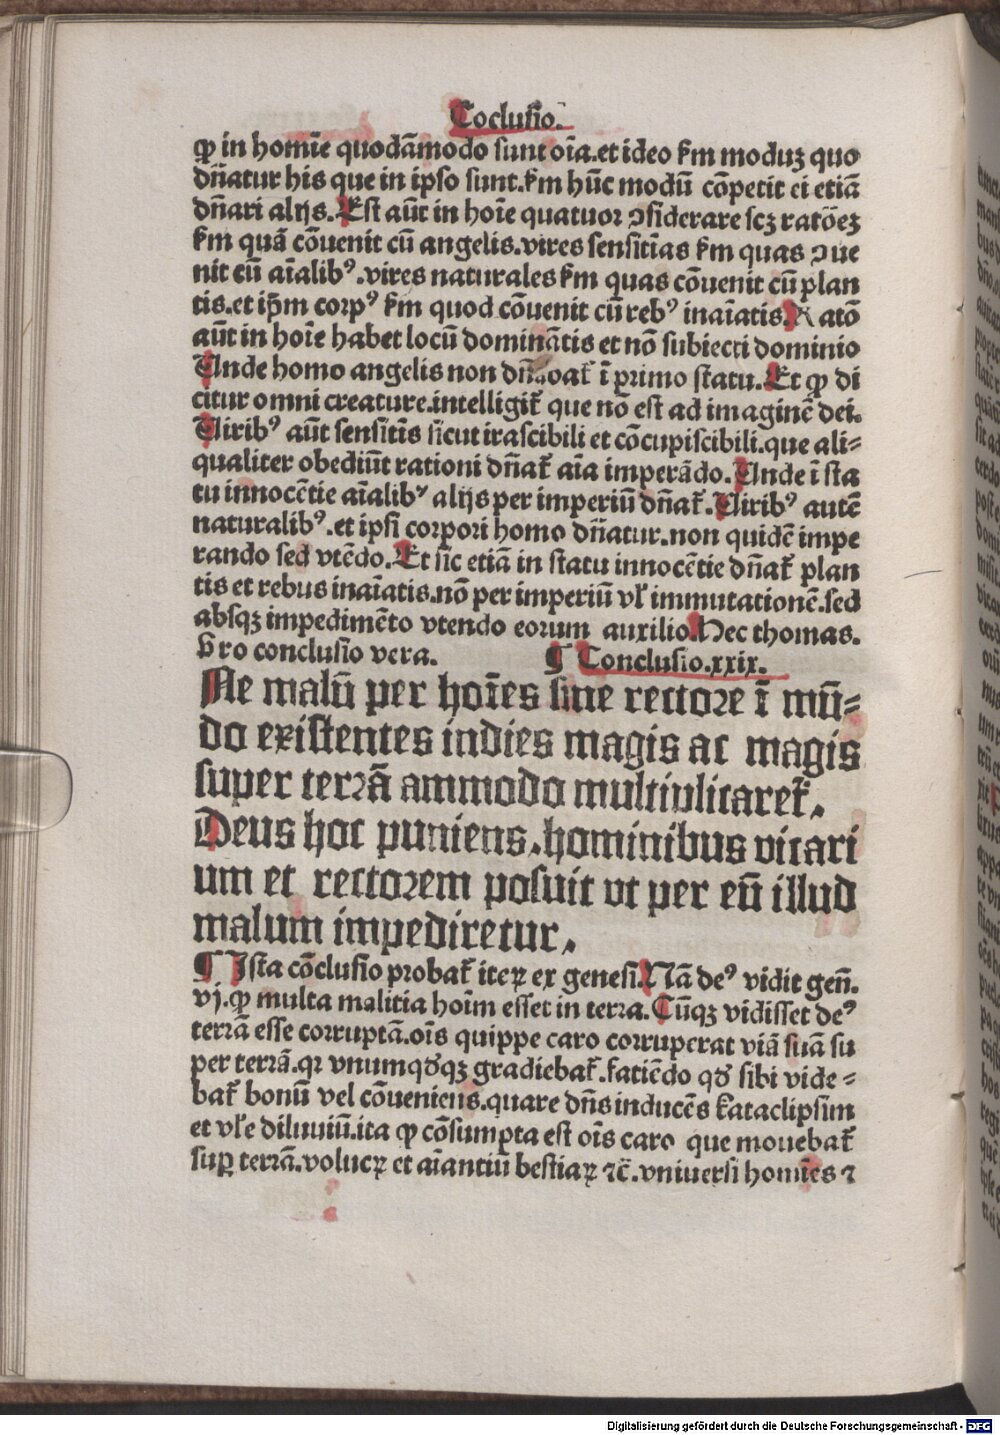 Cōclusio.
ꝙ in homīe quodāmodo sunt oīa.et ideo ẜm moduꝫ quo
dn̄atur his que in ipso sunt.ẜm hūc modū cōpetit ei etiā
dn̄ari alijs.Est aūt in hoīe quatuor ↄsiderare scꝫ ratōeꝫ
ẜm quā cōuenit cū angelis.vires sensitīas ẜm quas ↄue
nit cū aīalibꝰ.vires naturales ẜm quas cōuenit cū plan
tis.et ip̄m corpꝰ ẜm quod cōuenit cū rebꝰ inaīatis.Ratō
aūt in hoīe habet locū dominātis et nō subiecti dominio
Unde homo angelis non ī primo statu.Et ꝙ di
citur omni creature.intelligit᷑ que nō est ad imaginē dei.
Uiribꝰ aūt sensitīs sicut irascibili et cōcupiscibili.que ali⸗
qualiter obediūt rationi dn̄at᷑ aīa imperādo.Unde ī sta
tu innocētie aīalibꝰ alijs per imperiū dn̄at᷑.Uiribꝰ autē
naturalibꝰ.et ipsi corpori homo dn̄atur.non quidē impe
rando sed vtēdo.Et sic etiā in statu innocētie dn̄at᷑ plan
tis et rebus inaīatis.nō per imperiū vl᷑ immutationē.sed
absqꝫ impedimēto vtendo eorum auxilio.Hec thomas.
Ero conclusio vera. ¶ Conclusio.xxix.
Ne malū per hoīes sine rectore ī mū⸗
do existentes indies magis ac magis
super terrā ammodo multiplicaret᷑.
Deus hoc puniens.hominibus vicari
um et rectorem posuit vt per eū illud
malum impediretur.
¶ Ista cōclusio probat᷑ iteꝝ ex genesi.Nā deꝰ vidit gen̄.
vj.ꝙ multa malitia hoīm esset in terra.Cūqꝫ vidisset deꝰ
terrā esse corruptā.oīs quippe caro corruperat viā suā su
per terrā.qꝛ vnumqd̓qꝫ gradiebat᷑.faciēdo qd̓ sibi vide⸗
bat᷑ bonū vel cōueniens.quare dn̄s inducēs kataclipsūm
et vl᷑e diluuiū.ita ꝙ cōsumpta est oīs caro que mouebat᷑
suꝑ terrā.volucꝝ et aīantiū bestiaꝝ ⁊c̄.vniuersi homīes ⁊
Digitalisierung gefördert durch die Deutsche Forschungsgemeinschaft - DFG